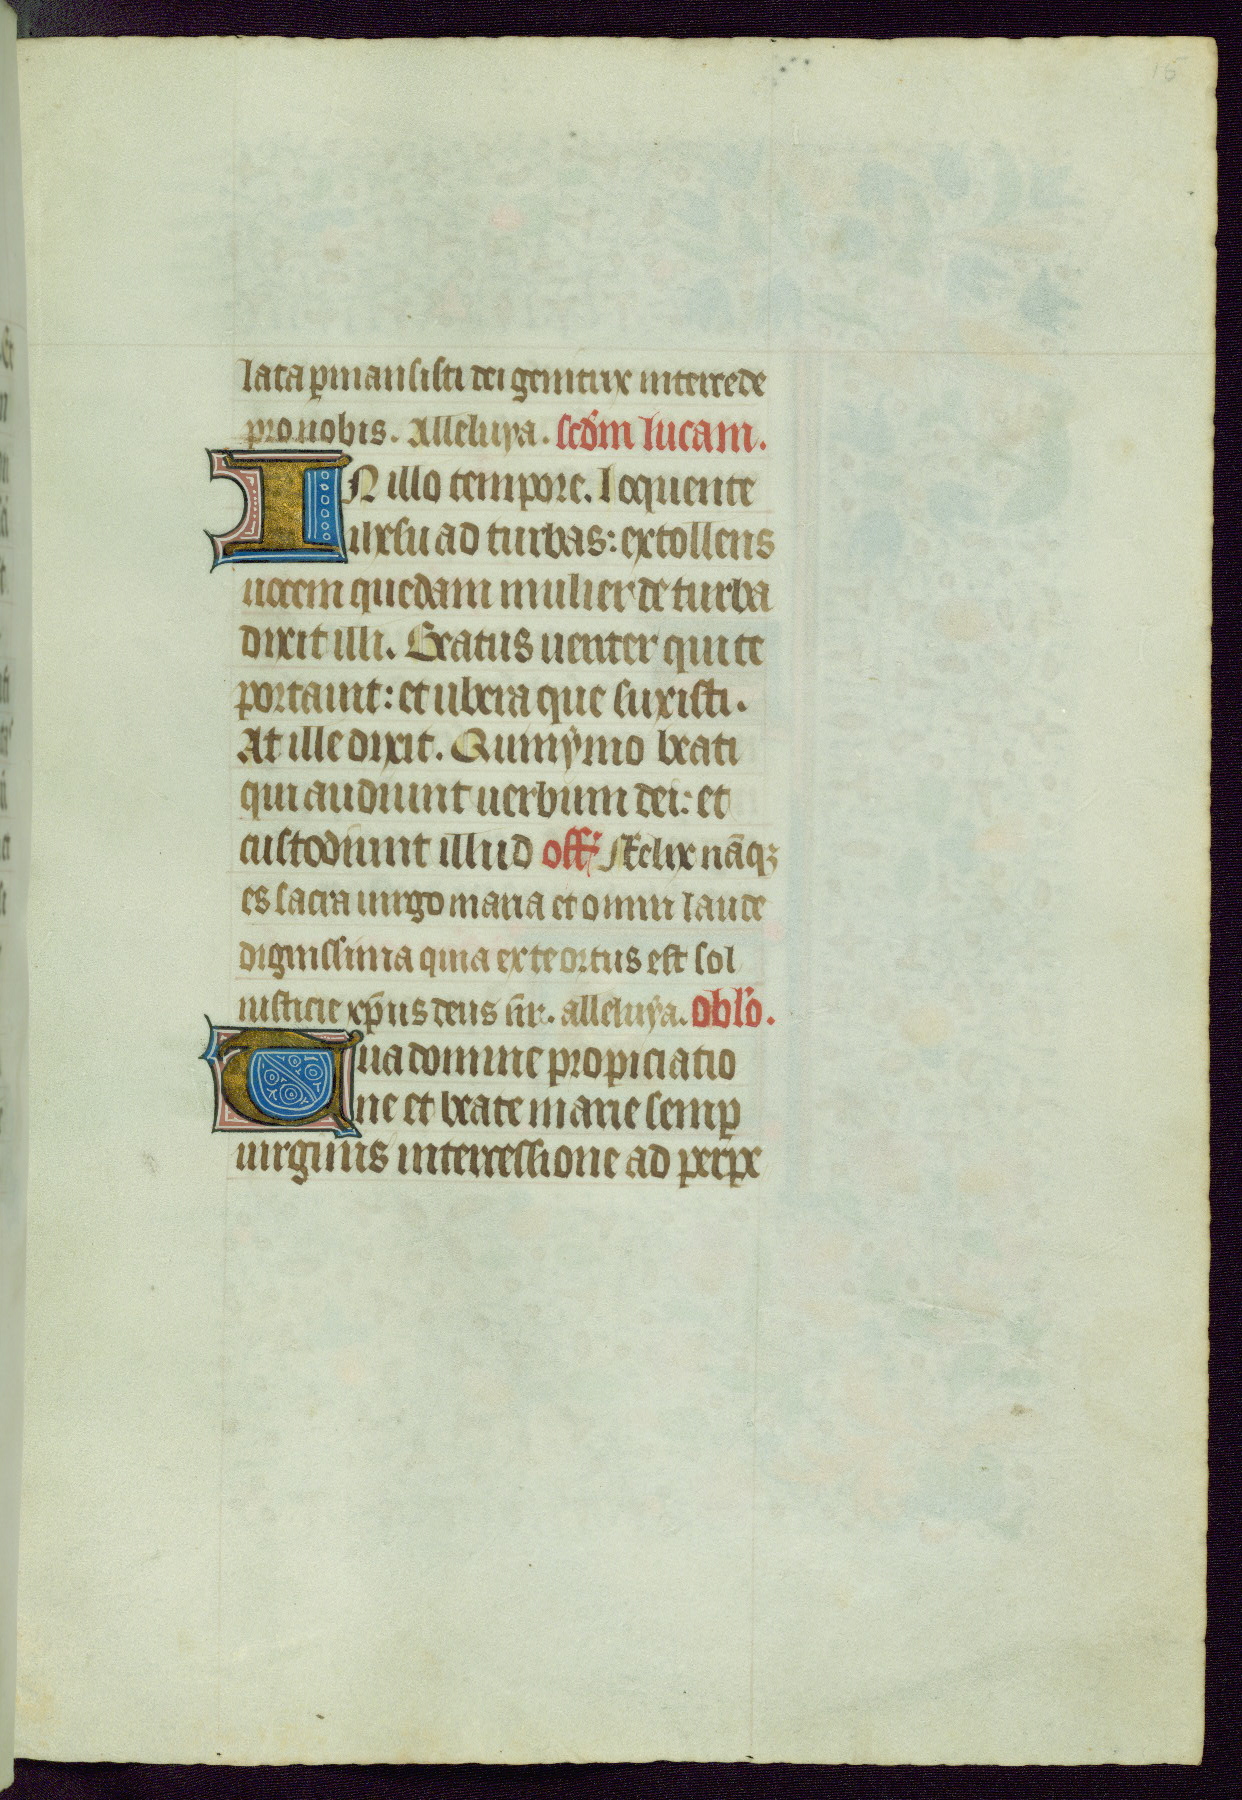 15
lata p̱mansisti dei genitrix intercede
pro nobis. Alleluya. scd̄m lucam.
IN illo tempore. Loquente
ihesu ad turbas: extollens
uocem quedam mulier de turba
dixit illi. Beatus uenter qui te
portauit: et ubera que suxisti.
At ille dixit. Quinÿmo beati
qui audiunt uerbum dei: et
custodiunt illud off. Felix nāqꝫ
es sacra uirgo maria et omni laude
dignissima quia ex te ortus est sol
iusticie xp̄us deus nr̄. alleluÿa. Oblō.
Tua domine propiciatio
ne et beate marie semꝑ
uirginis intercessione ad perpe